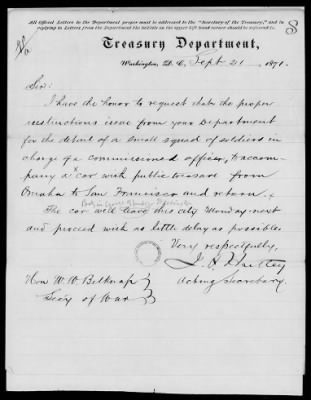 All Official Letters to the Department proper must be addressed to the "Secretary of the Treasury," and in
replying to Letters from the Department the initials on the upper left hand corner should be referred to.
8
Treasury Department,
Washington, D. C., Sept 21 1871.
Sir:
I have the honor to request that the proper
instructions issue from your Department
for the detail of a small squad of soldiers in
charge of a commissioned officer, to accom-
pany a x car with public treasure from
Omaha to San Francisco and return. x
The car will leave this city Monday next
and proceed with as little delay as possible.
Very respectfully,
J. H. Hartley
Acting Secretary.
Hon W. W. Belknap
Secy of War